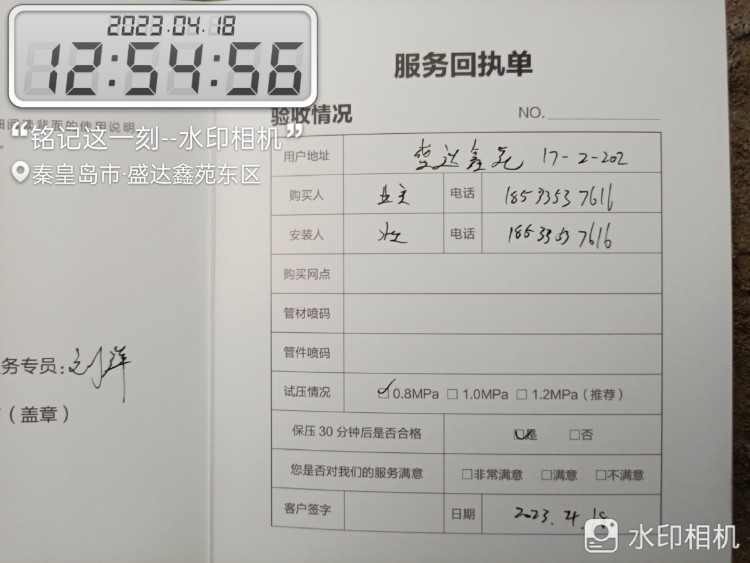 2023.04.18
12:54:56
“铭记这一刻--水印相机”
秦皇岛市·盛达鑫苑东区
细阅读背面的使用说明
务专员：刘洋
（盖章）
服务回执单
验收情况 NO.
用户地址 盛达鑫苑 17-2-202
购买人 业主 电话 18533537616
安装人 电话 18533537616
购买网点
管材喷码
管件喷码
试压情况 ☑0.8MPa □1.0MPa □1.2MPa（推荐）
保压30分钟后是否合格 ☑是 □否
您是否对我们的服务满意 □非常满意 □满意 □不满意
客户签字 日期 2023.4.18
水印相机